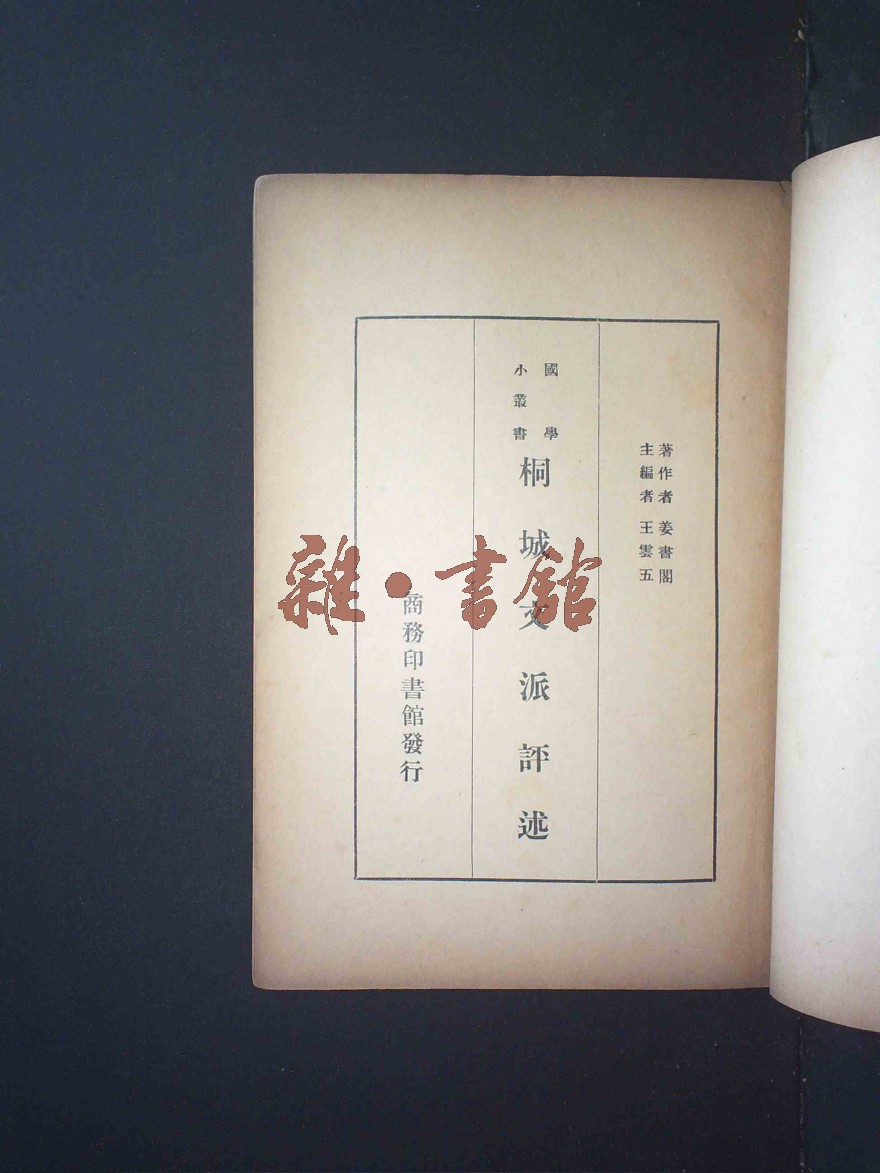 著作者 姜書閣
主編者 王雲五
國學
小叢書
桐城文派評述
商務印書館發行
雜·書館